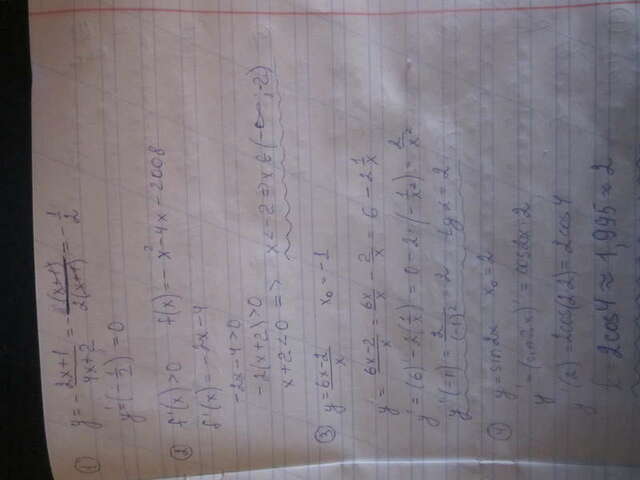 ① y = -\frac{2x+1}{4x+2} = -\frac{(2x+1)}{2(2x+1)} = -\frac{1}{2}
y' = (-\frac{1}{2})' = 0
② f'(x) > 0 f(x) = -x² - 4x - 2008
f'(x) = -2x - 4
-2x - 4 > 0
-2(x+2) > 0
x + 2 < 0 => x < -2 => x ∈ (-∞; -2)
③ y = \frac{6x-2}{x} x₀ = -1
y = \frac{6x-2}{x} = \frac{6x}{x} - \frac{2}{x} = 6 - 2\frac{1}{x}
y' = (6)' - 2(\frac{1}{x})' = 0 - 2·(-\frac{1}{x²}) = \frac{2}{x²}
y'(-1) = \frac{2}{(-1)²} = 2 tg α = 2
④ y = sin2x x₀ = 2
y' = (sin2x)' = cos2x·2
y'(2) = 2cos(2·2) = 2cos4
2cos4 ≈ 1,995 ≈ 2